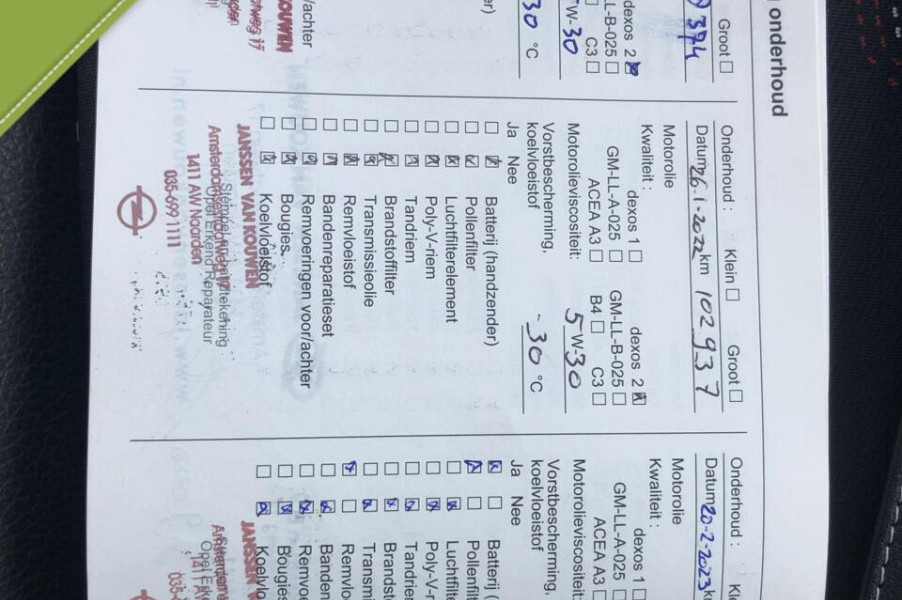 onderhoud
Groot ☐
374
dexos 2 ☒
L-B-025 ☐
C3 ☐
W-30
30 °C
/achter
KOUWEN
weg 17
Onderhoud : Klein ☐ Groot ☐
Datum 26-1-2022 km 102937
Motorolie
Kwaliteit : dexos 1 ☐ dexos 2 ☒
GM-LL-A-025 ☐ GM-LL-B-025 ☐
ACEA A3 ☐ B4 ☐ C3 ☐
Motorolieviscositeit: 5W-30
Vorstbescherming,
koelvloeistof -30 °C
Ja Nee
☐ ☒ Batterij (handzender)
☐ ☒ Pollenfilter
☐ ☒ Luchtfilterelement
☐ ☒ Poly-V-riem
☐ ☒ Tandriem
☐ ☒ Brandstoffilter
☐ ☒ Transmissieolie
☐ ☒ Remvloeistof
☐ ☒ Bandenreparatieset
☐ ☒ Remvoeringen voor/achter
☐ ☒ Bougies
☐ ☒ Koelvloeistof
JANSSEN VAN KOUWEN
Opel Erkend Reparateur
1411 AW Naarden
035-699 1111
Onderhoud : Kl
Datum 20-2-2023 k
Motorolie
Kwaliteit : dexos 1 ☐
GM-LL-A-025 ☐
ACEA A3 ☐
Motorolieviscositeit:
Vorstbescherming,
koelvloeistof
Ja Nee
☒ ☐ Batterij (
☒ ☐ Pollenfilt
☐ ☒ Luchtfilte
☐ ☒ Poly-V-r
☐ ☒ Tandrien
☐ ☒ Brandst
☐ ☒ Transmi
☒ ☐ Remvlo
☐ ☒ Banden
☐ ☒ Remvo
☐ ☒ Bougies
☐ ☒ Koelvlo
JANSSEN
Opel Erke
1411 A
035-